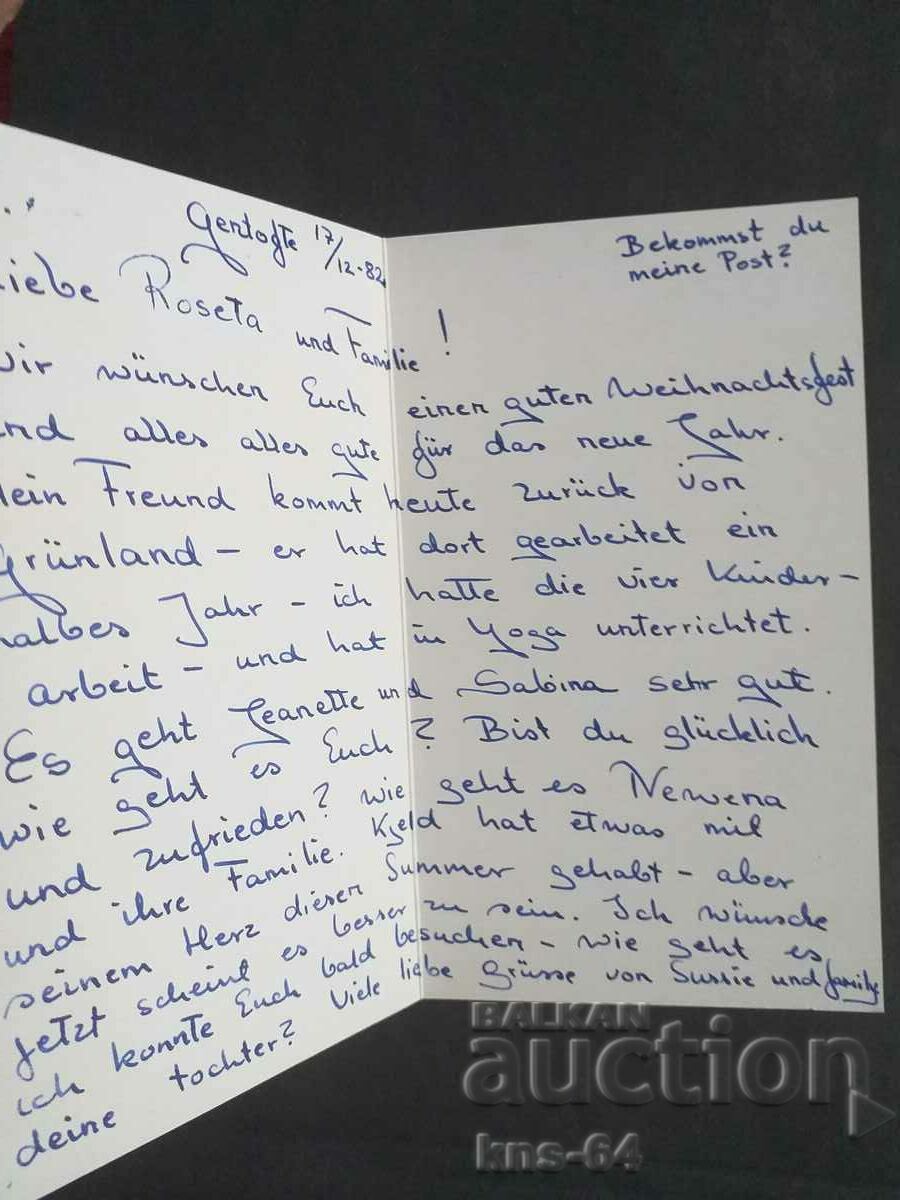 Gentofte 17/12-82
Bekommst du
meine Post?
Liebe Roseta und Familie!
wir wünschen Euch einen guten Weihnachtsfest
und alles alles gute für das neue Jahr.
Mein Freund kommt heute zurück von
Grünland - er hat dort gearbeitet ein
halbes Jahr - ich hatte die vier Kinder -
arbeit - und hat in Yoga unterrichtet.
Es geht Jeanette und Sabina sehr gut.
wie geht es Euch? Bist du glücklich
und zufrieden? wie geht es Newena
und ihre Familie. Kjeld hat etwas mit
seinem Herz diesen Summer gehabt - aber
jetzt scheint es besser zu sein. Ich wünsche
ich konnte Euch bald besuchen - wie geht es
deine tochter? Viele liebe Grüsse von Sussie und family
BALKAN
auction
kns-64